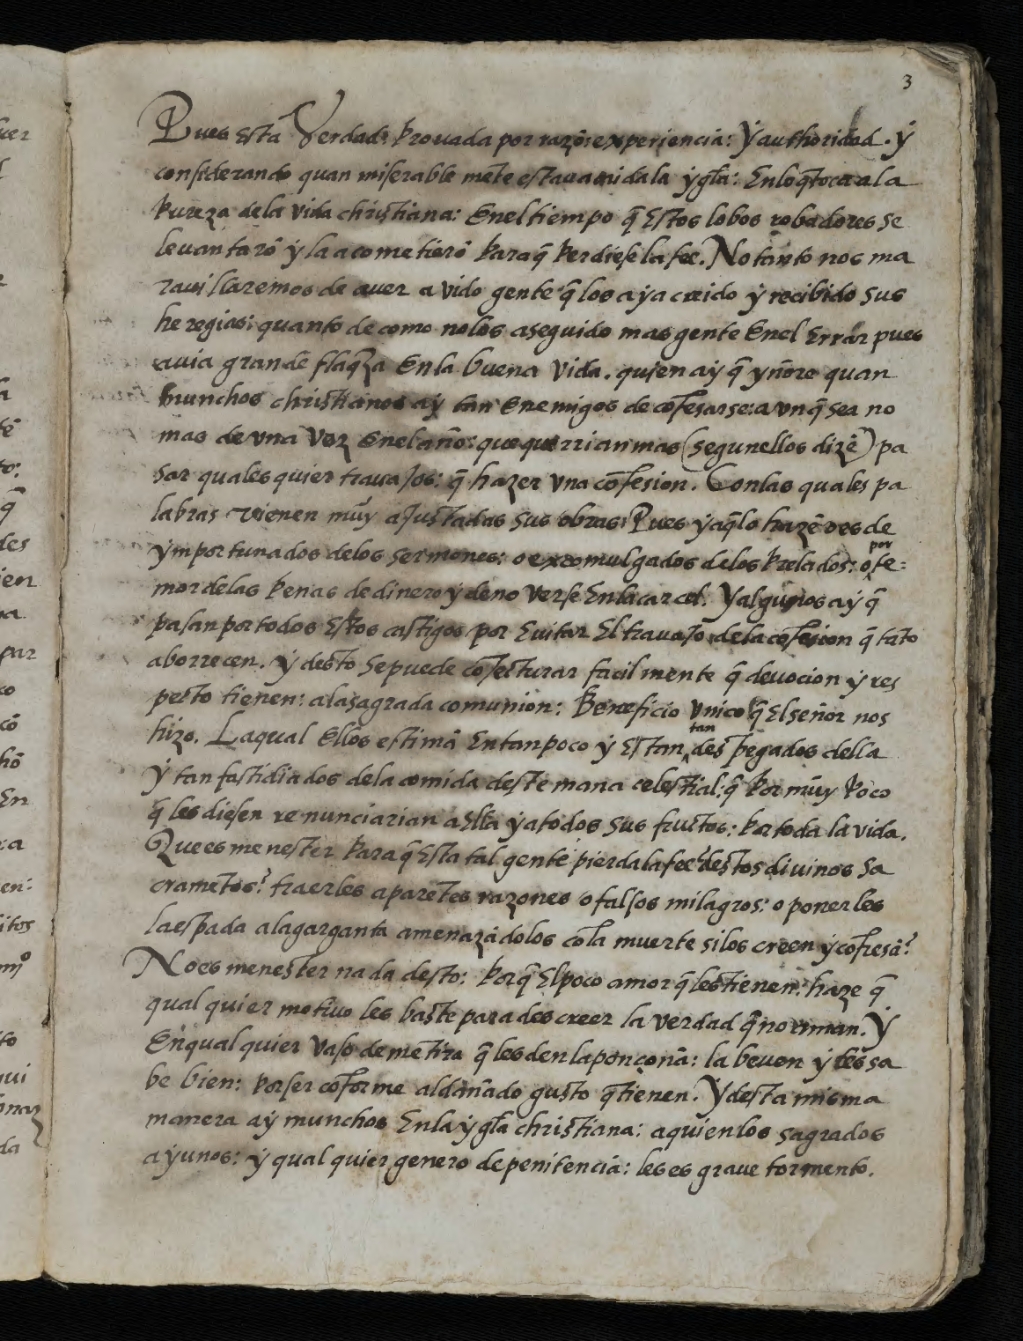 3
Pues esta Verdad: provada por razõ: experiencia: ẏ authoridad. ẏ
considerando quan miserable mẽte estava caida la ẏgľa: En lo q̃ toca a la
pureza de la vida christiana: En el tiempo q̃ Estos lobos robadores se
levantarõ ẏ la acometierõ para q̃ perdiese la fee. No tanto nos ma
ravillaremos de aver avido gente q̃ los aẏa creido ẏ recibido sus
heregias: quanto de como no los a seguido mas gente En el Error pues
avia grande flaq̃za En la buena vida. quien aẏ q̃ ẏñore quan
munchos christianos aẏ tan Enemigos de cõfesarse: a vnq̃ sea no
mas de vna vez En el año: que querrian mas (segun ellos dizẽ) pa
sar quales quier travajos: q̃ hazer vna cõfesion. Con las quales pa
labras vienen muẏ ajustadas sus obras: Pues ẏa q̃ lo hazẽ es de
ẏmportunados de los sermones: o excomulgados de los prelados: o por te:
mor de las penas de dinero ẏ de no verse En la carcel. Y algunos aẏ q̃
pasan por todos Estos castigos por Evitar El travajo de la cõfesion q̃ tãto
aborrecen. ẏ desto se puede cõjecturar facilmente q̃ devocion ẏ res
pecto tienen: a la sagrada comunion: Beneficio vnico q̃ El señor nos
hizo. La qual Ellos estimã En tan poco ẏ Estan tan despegados della
ẏ tan fastidiados de la comida deste mana celestial: q̃ por muẏ poco
q̃ les diesen renunciarian a Ella ẏ a todos sus fructos: por toda la vida.
Que es menester para q̃ Esta tal gente pierda la fee destos divinos sa
cramẽtos? traerles aparẽtes razones o falsos milagros: o ponerles
la espada a la garganta amenazãdolos cõ la muerte si los creen ẏ cõfiesã?
No es menester nada desto: porq̃ El poco amor q̃ les tienen: haze q̃
qual quier motivo les baste para descreer la verdad q̃ no aman. Ẏ
En qual quier vaso de mẽtira q̃ les den la ponçoña: la beven ẏ les sa
be bien: por ser cõforme al dañado gusto q̃ tienen. Y desta misma
manera aẏ munchos En la ẏgľa christiana: a quien los sagrados
aẏunos: ẏ qual quier genero de penitencia: les es grave tormento.